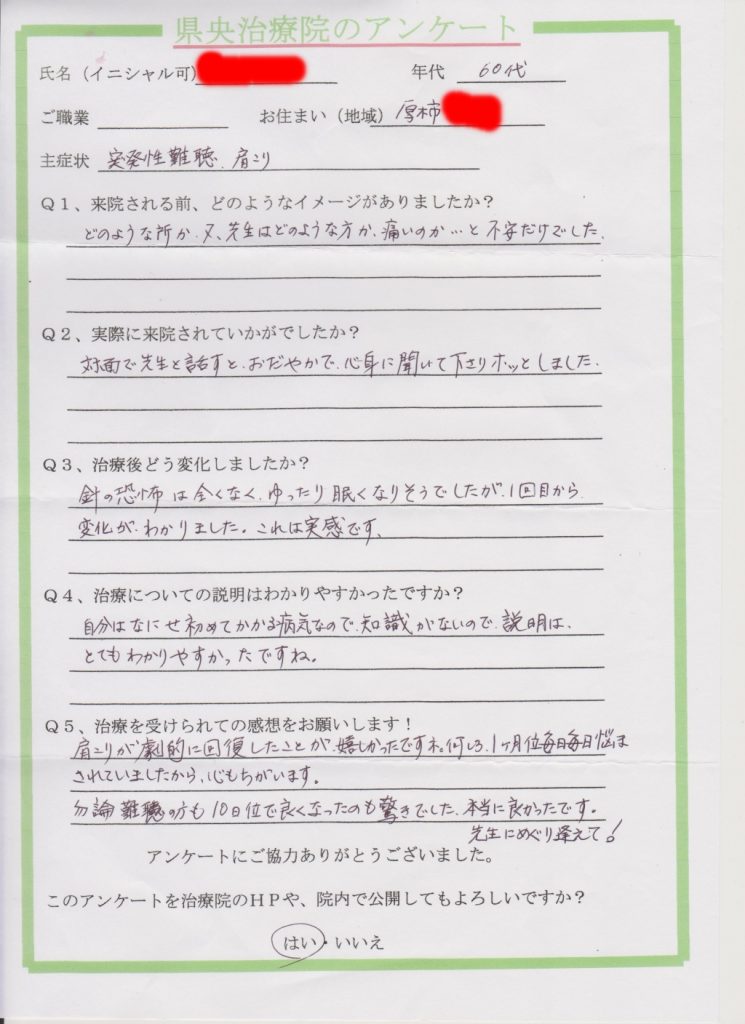 県央治療院のアンケート
氏名（イニシャル可） 年代 60代
ご職業 お住まい（地域） 厚木市
主症状 突発性難聴、肩こり
Q１、来院される前、どのようなイメージがありましたか？
どのような所か、又、先生はどのような方か、痛いのか…と不安だけでした。
Q２、実際に来院されていかがでしたか？
対面で先生と話すと、おだやかで、心身に聞いて下さりホッとしました。
Q３、治療後どう変化しましたか？
針の恐怖は全くなく、ゆったり眠くなりそうでしたが、1回目から
変化が、わかりました。これは実感です、
Q４、治療についての説明はわかりやすかったですか？
自分はなにせ初めてかかる病気なので、知識がないので、説明は、
とてもわかりやすかったですね。
Q５、治療を受けられての感想をお願いします！
肩こりが劇的に回復したことが、嬉しかったですネ。何しろ、1ヶ月位毎日毎日悩ま
されていましたから、心もちがいます。
勿論難聴の方も10日位で良くなったのも驚きでした、本当に良かったです。
先生にめぐり逢えて！
アンケートにご協力ありがとうございました。
このアンケートを治療院のＨＰや、院内で公開してもよろしいですか？
はい・いいえ